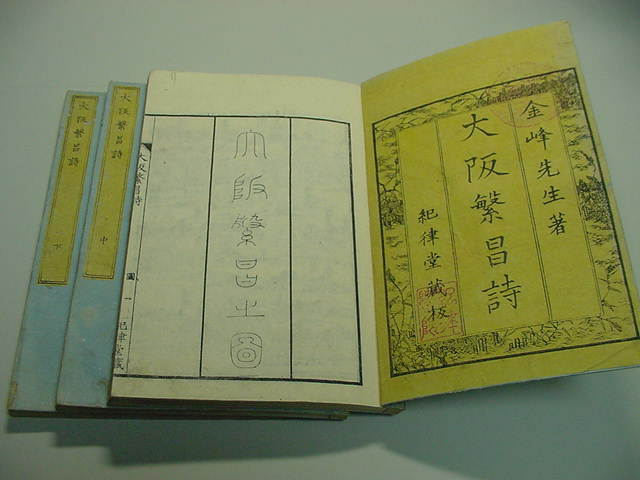 金峰先生著
大阪繁昌詩
紀律堂藏板
大阪繁昌之圖
大阪繁昌詩
圖
一
紀律堂藏
大阪繁昌詩
中
大阪繁昌詩
下